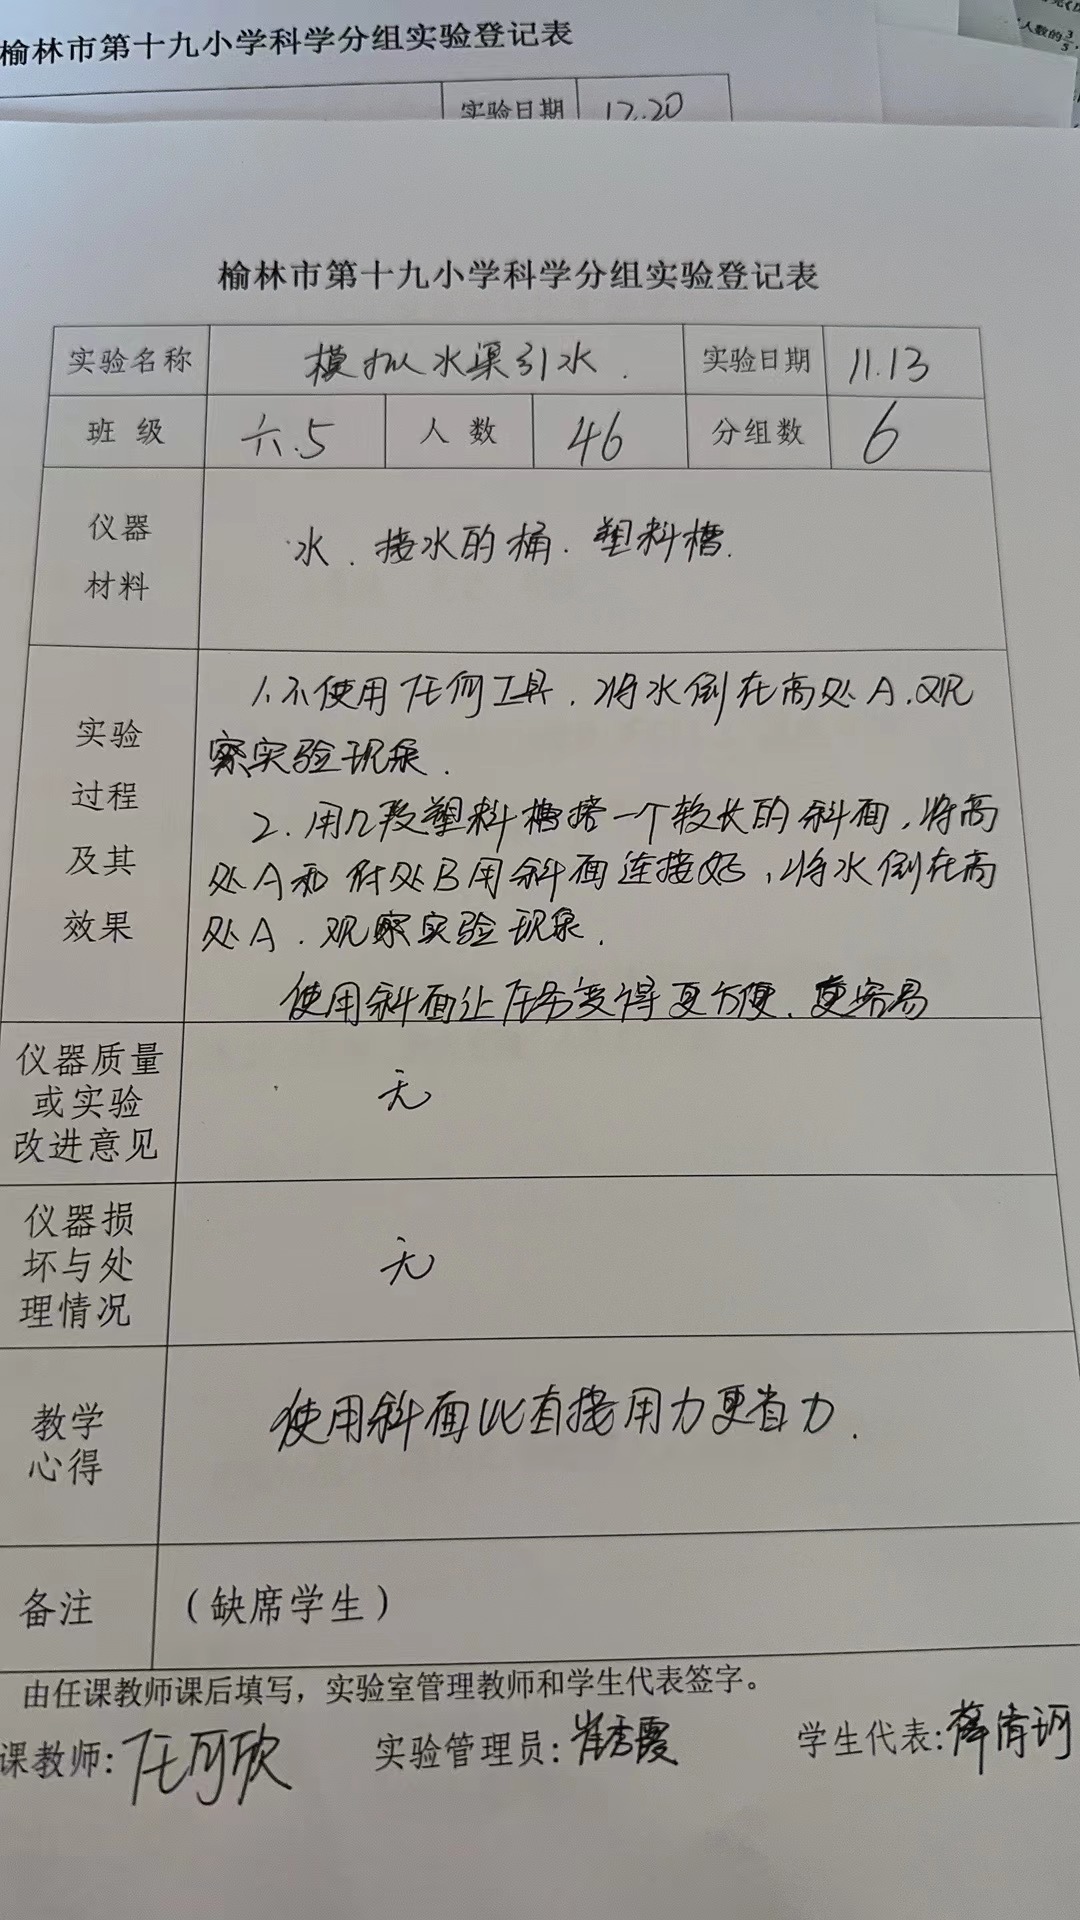 榆林市第十九小学科学分组实验登记表
人数的3/5
实验日期 12.20
榆林市第十九小学科学分组实验登记表
实验名称 模拟水渠引水. 实验日期 11.13
班级 六.5 人数 46 分组数 6
仪器
材料
水. 接水的桶. 塑料槽.
实验
过程
及其
效果
1.不使用任何工具.将水倒在高处A.观
察实验现象.
2.用几段塑料槽搭一个较长的斜面,将高
处A和 处B用斜面连接好,将水倒在高
处A.观察实验现象.
使用斜面让任务变得更方便.更容易
仪器质量
或实验
改进意见
无
仪器损
坏与处
理情况
无
教学
心得
使用斜面比直接用力更省力.
备注 (缺席学生)
由任课教师课后填写，实验室管理教师和学生代表签字。
课教师: 任可欣 实验管理员: 崔秀霞 学生代表: 薛